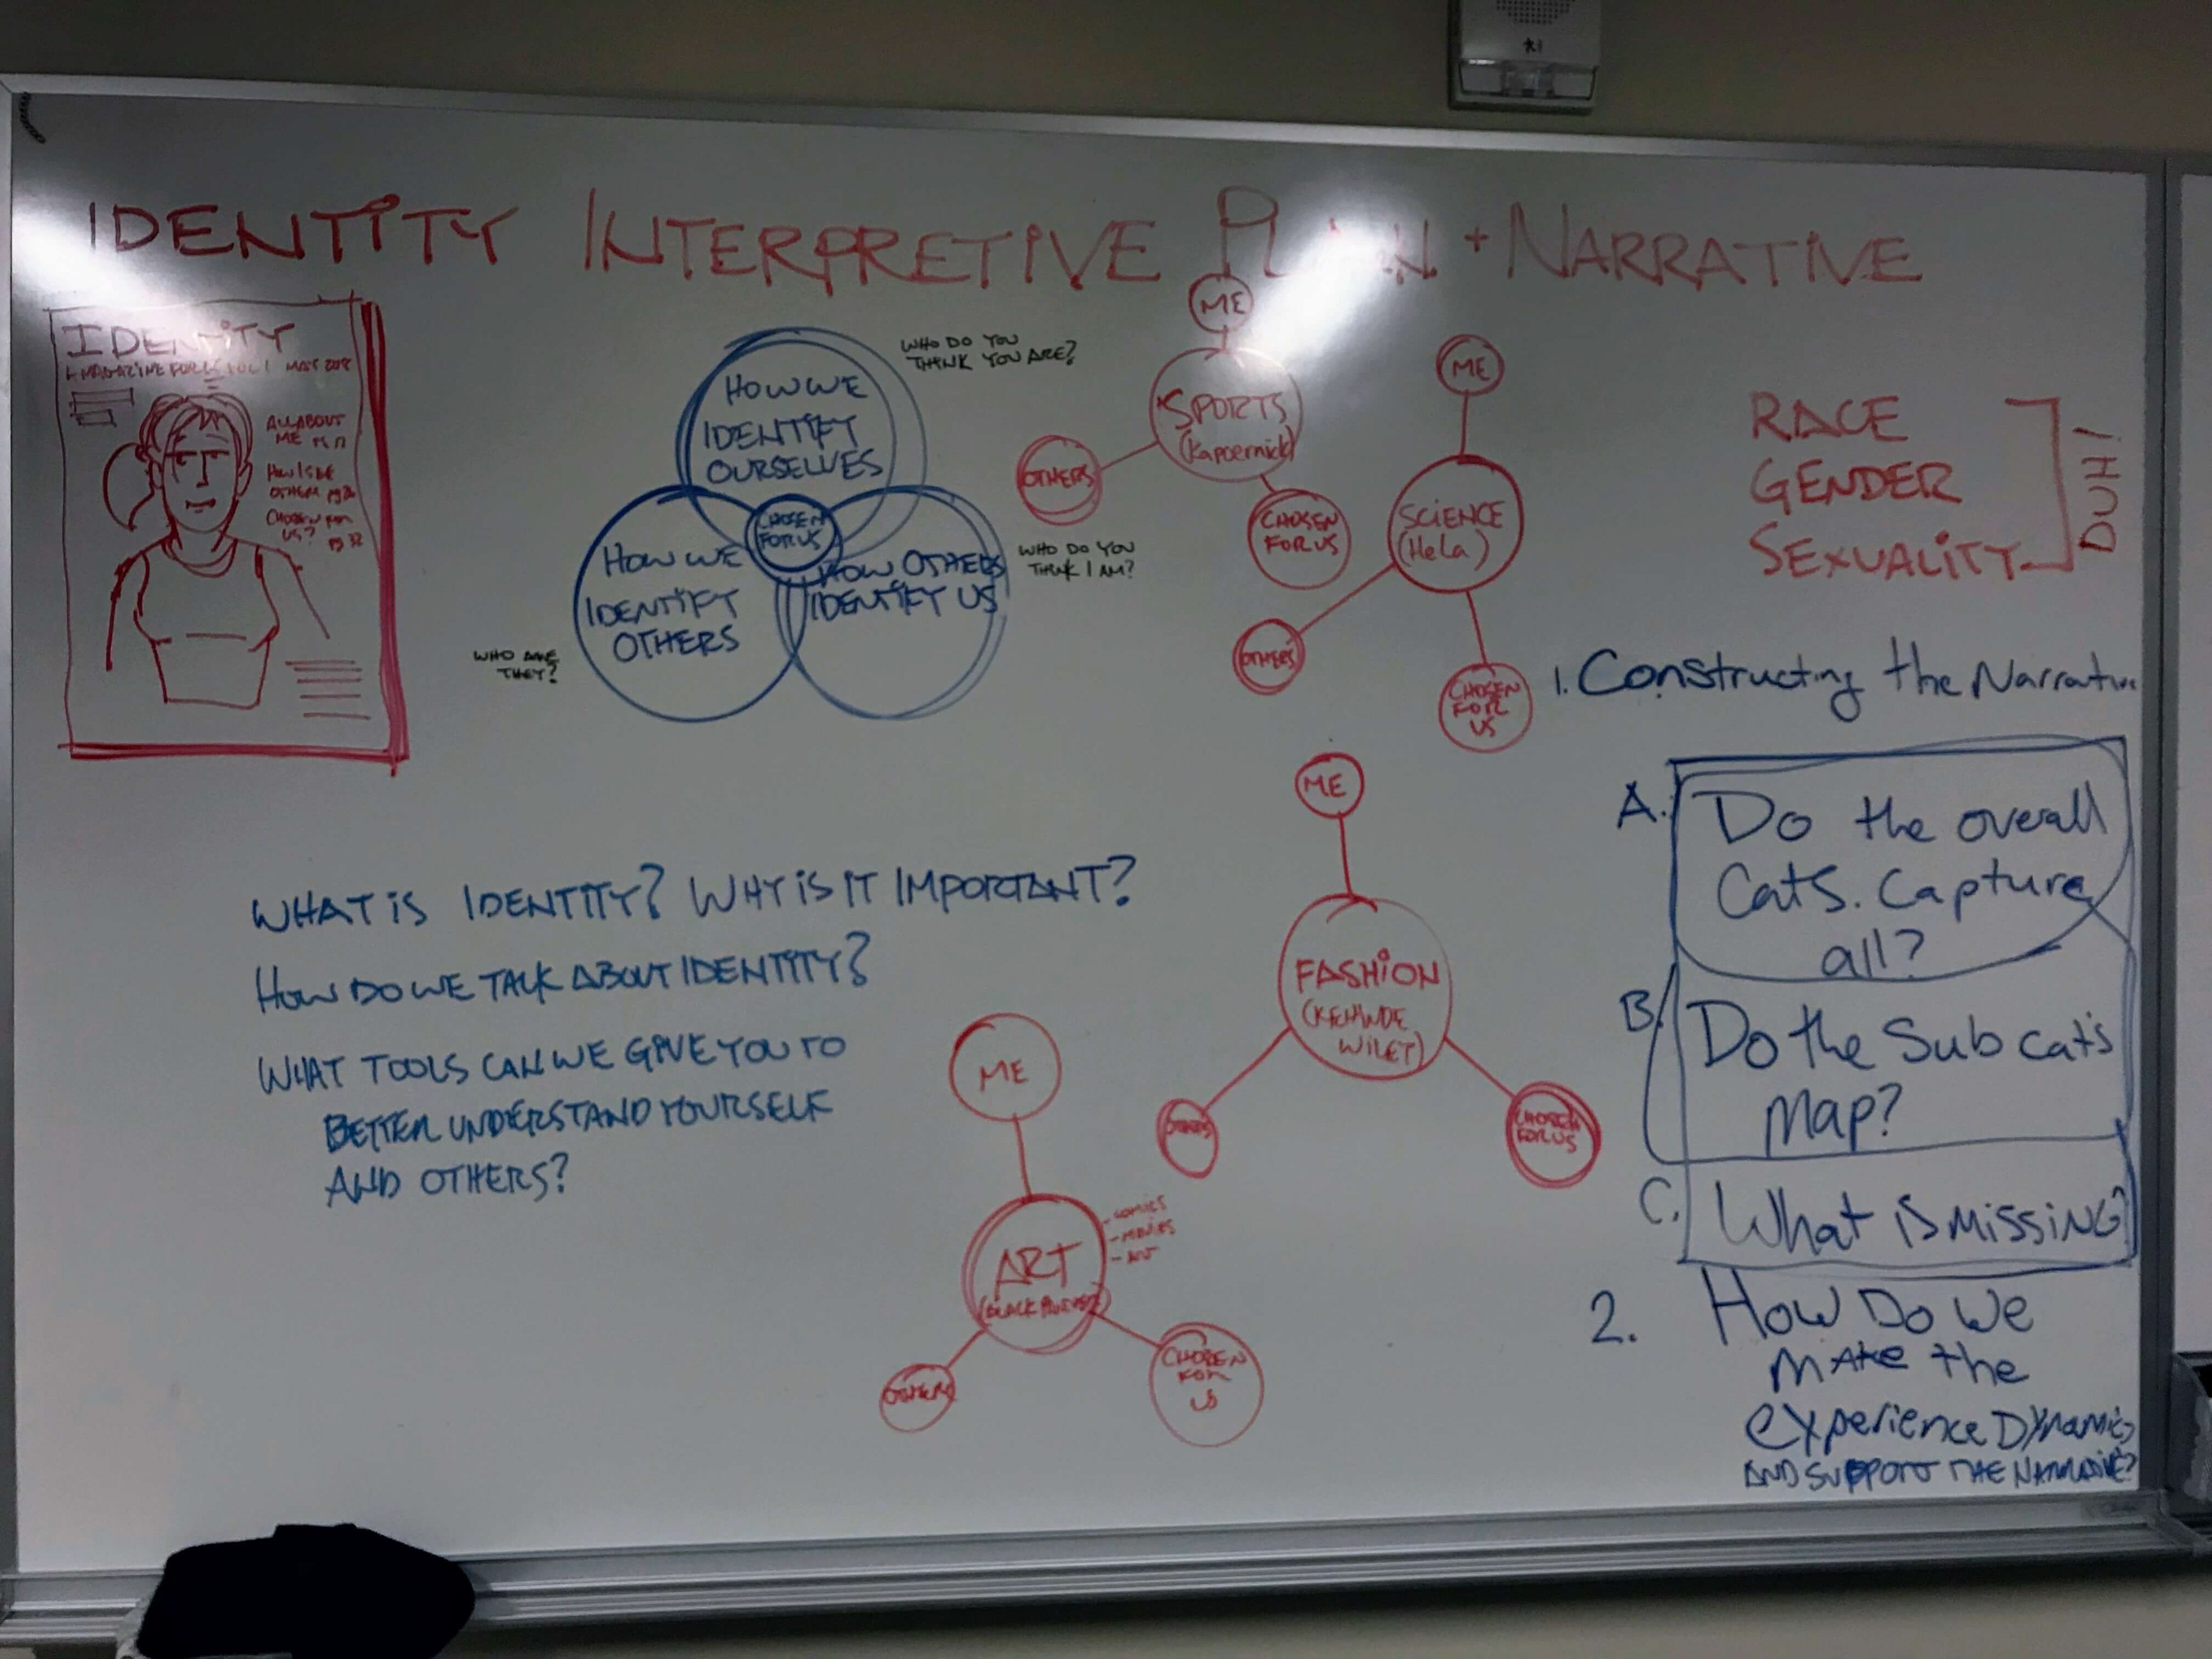 IDENTITY INTERPRETIVE PLAN + NARRATIVE
IDENTITY
MAGAZINE FOR VOL 1 MAY
ALL ABOUT
ME
HOW I SEE
OTHERS pg
CHOSEN FOR
US?
pg 32
WHO DO YOU
THINK YOU ARE?
HOW WE
IDENTIFY
OURSELVES
CHOSEN
FOR US
HOW WE
IDENTIFY
OTHERS
HOW OTHERS
IDENTIFY US
WHO DO YOU
THINK I AM?
WHO ARE
THEY?
ME
SPORTS
(Kapoernick)
OTHERS
CHOSEN
FOR US
ME
SCIENCE
(HeLa)
OTHERS
CHOSEN
FOR
US
RACE
GENDER
SEXUALITY
DUH!
1. Constructing the Narrative
A. Do the overall
Cats. Capture
all?
B. Do the Sub cat's
Map?
C. What is missing?
2. How Do We
make the
experience Dynamic
AND SUPPORT THE NARRATIVE?
WHAT IS IDENTITY? WHY IS IT IMPORTANT?
HOW DO WE TALK ABOUT IDENTITY?
WHAT TOOLS CAN WE GIVE YOU TO
BETTER UNDERSTAND YOURSELF
AND OTHERS?
ME
FASHION
(KEHINDE
WILEY)
OTHERS
CHOSEN
FOR US
ME
ART
(BLACK PANTHER)
- COMICS
- MOVIES
- ART
OTHERS
CHOSEN
FOR
US